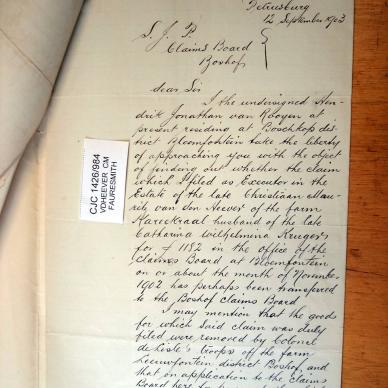 Petrusburg
12 September 1903
S. J. P.
Claims Board
Boshof
dear Sir
I the undersigned Hen-
drik Jonathan van Rooyen at
present residing at Boschkop dis-
trict Bloemfontein take the liberty
of approaching you with the object
of finding out whether the claim
which I filed as Executor in the
Estate of the late Christiaan Mau-
ritz van der of the farm
husband of the late
Catharina Wilhelmina Kruger
for £ 1152 in the office of the
Claims Board at Bloemfontein
on or about the month of November
1902 has perhaps been transferred
to the Boshof Claims Board.
I may mention that the goods
for which said claim was duly
filed were removed by Colonel
de Lisle's Troops off the farm
Leeuwfontein district Boshof, and
that on application to the Claims
Board here
CJC 1426/984
VOHEEVER CM
FAURESMITH